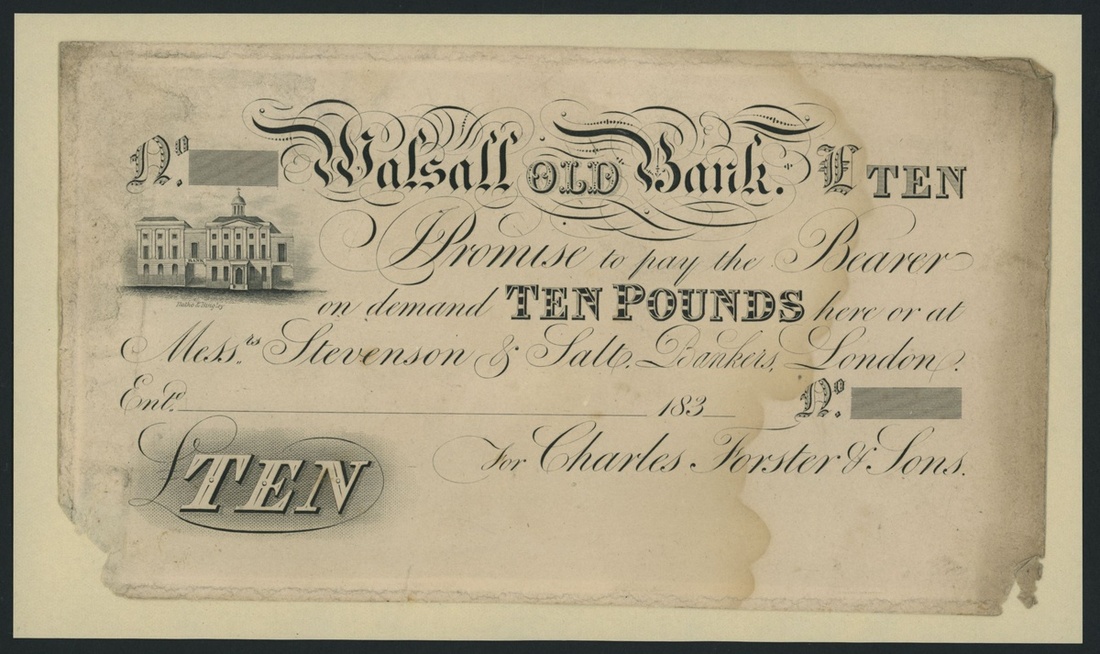 No. Walsall OLD Bank. £ TEN
BANK
I Promise to pay the Bearer
on demand TEN POUNDS here or at
Mess.rs Stevenson & Salt, Bankers, London.
Entd. 183 No.
£TEN For Charles Forster & Sons.